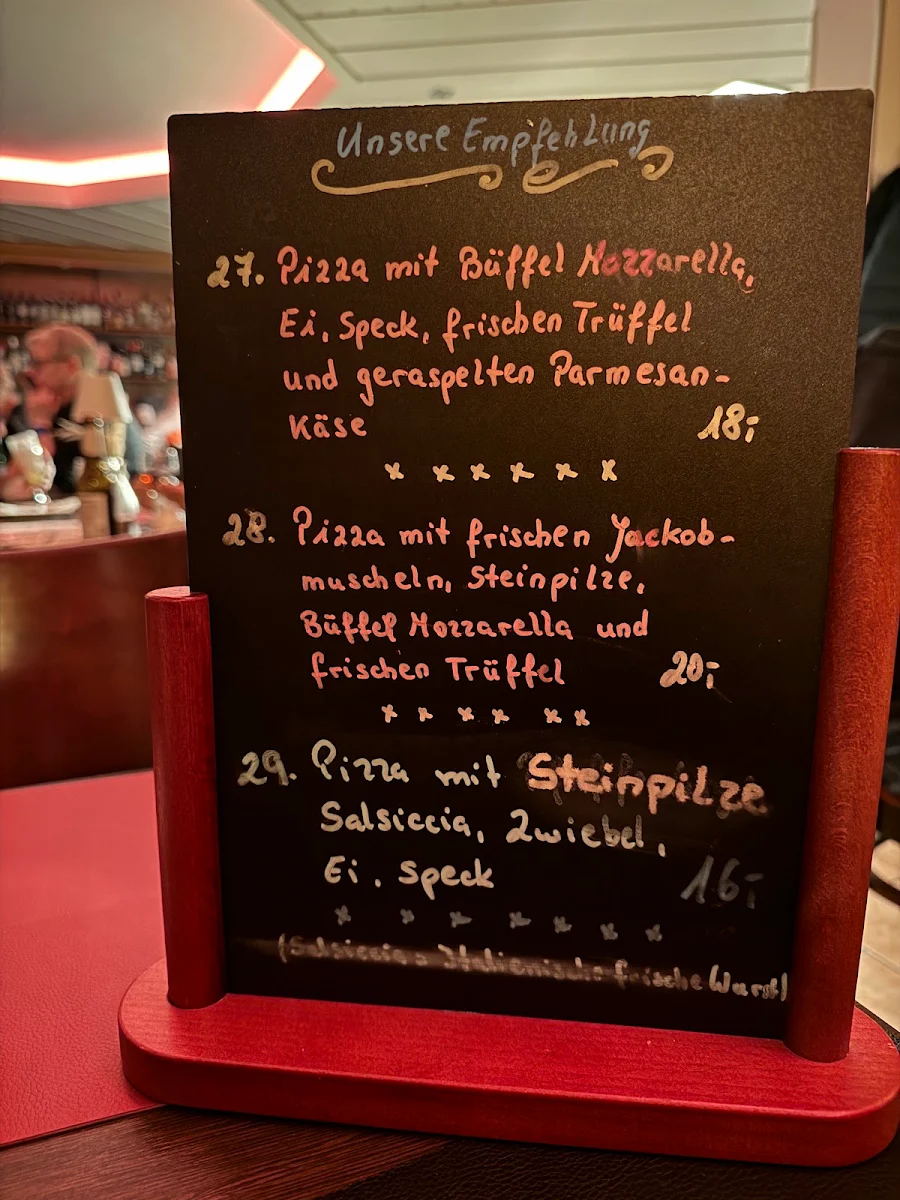 Unsere Empfehlung
27. Pizza mit Büffel Mozzarella,
Ei, Speck, frischen Trüffel
und geraspelten Parmesan-
Käse 18,-
x x x x x x
28. Pizza mit frischen Jackob-
muscheln, Steinpilze,
Büffel Mozzarella und
frischen Trüffel 20,-
x x x x x x
29. Pizza mit Steinpilze
Salsiccia, Zwiebel,
Ei, Speck 16,-
x x x x x x x
(Salsiccia = Italienische frische Wurst)